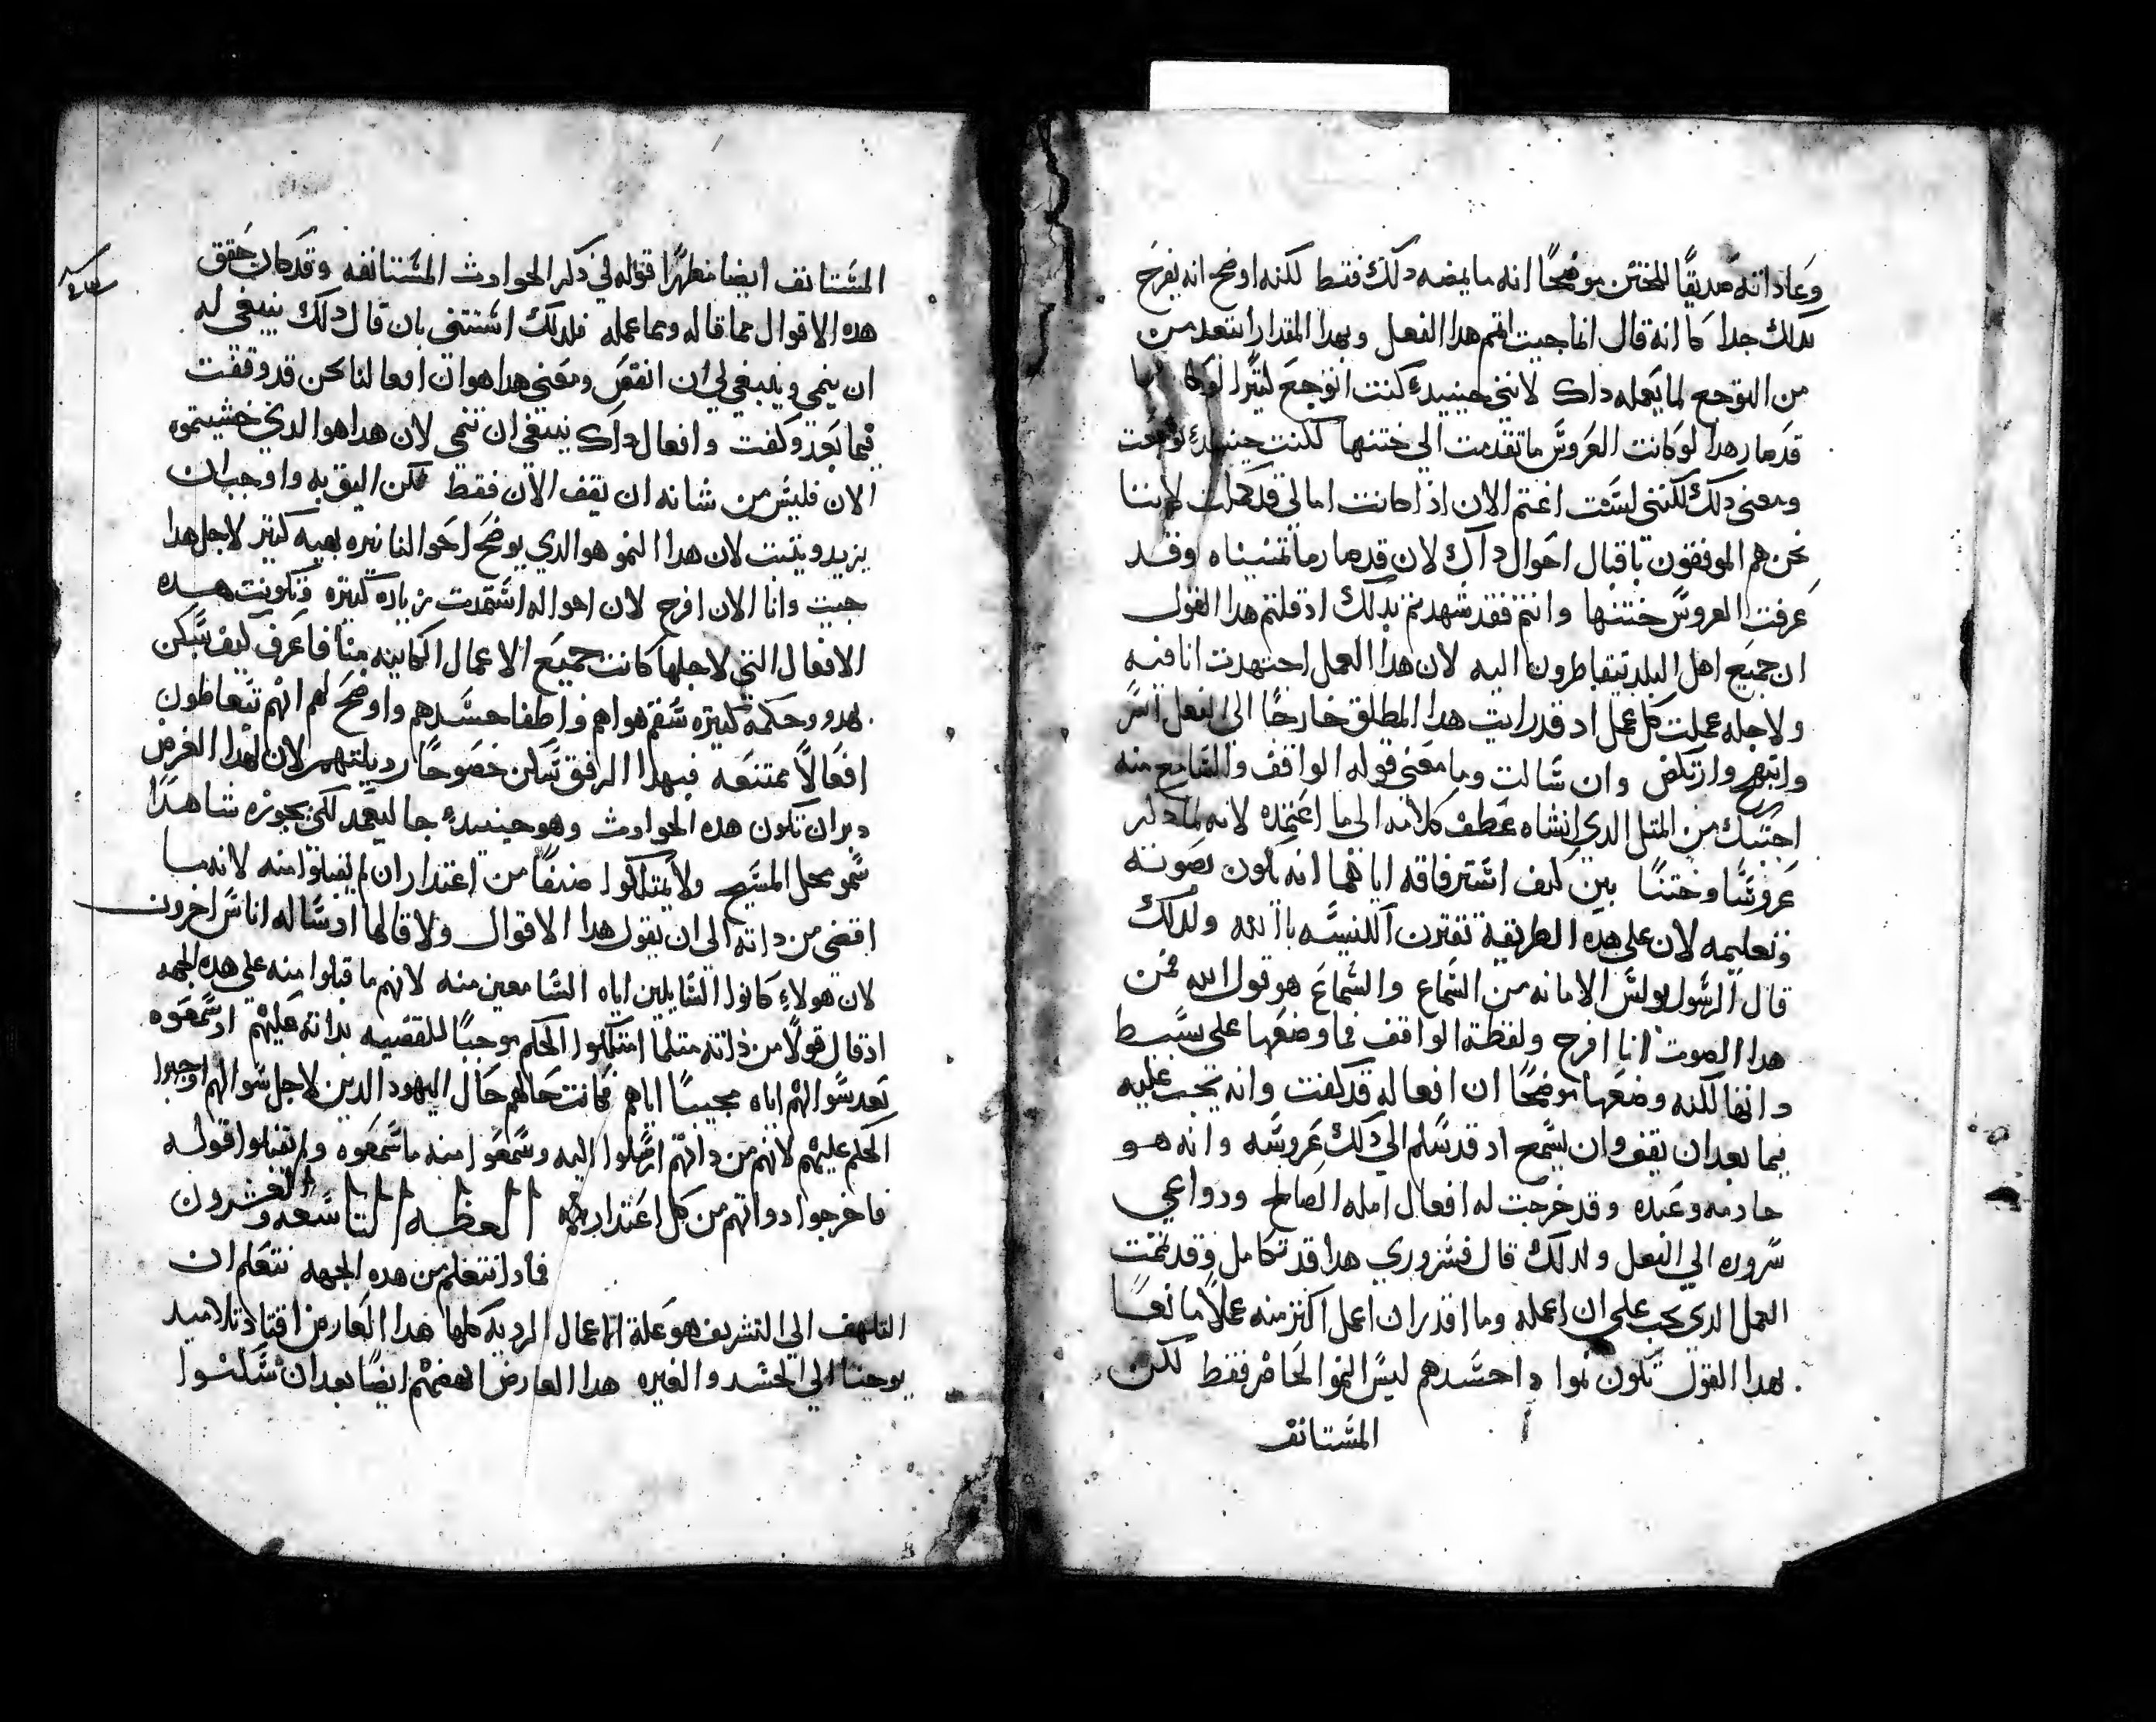 وعاد اته صديقًا للختن موضحًا انه ما يمضه دلك فقط لكنه اوضح انه يفرح
بدلك جدا كما انه قال انما جيت اتمم هدا الفعل وبهدا المقدار ابتعد من
من التوجع لما يعمله داك لانني حينيدٍ كنت اتوجع كتيرًا لو
قد صار هدا لو كانت العروس ما تقدمت الي ختنها لكنت حينيدٍ توجعت
ومعني دلك لكنني لست اغتم الان اد اكانت امالي قد كملت لاننا
نحن هم الموفقون باقبال احوال داك لان قد صار ما تمنيناه وقد
عرفت العروس ختنها وانتم فقد شهدتم بدلك اد قلتم هدا القول
ان جميع اهل البلد يتقاطرون اليه لان هدا العمل اجتهدت انا فيه
ولاجله عملت كل عمل اد قد رايت هدا المطلق خارجًا الي الفعل اسر
وابتهج وارتكض وان سالت وما معني قوله الواقف والسامع منه
اجبتك من المتل الدي انشاه عطف كلامه الي ما اعتمده لانه لما دكر
عروسًا وختنًا بين كيف استرفاقه اياهما انه يكون بصوته
وتعليمه لان علي هده الطريقة تقترن الكنيسه بالله ولدلك
قال الرسول بولس الامانه من السماع والسماع هو قول الله فمن
هدا الصوت انا افرح ولفظة الواقف فما وضعها علي بسيط
داتها لكنه وضعها موضحًا ان افعاله قد كفت وانه يجب عليه
فيما بعد ان يقف وان يسمع اد قد سلم الي دلك عروسه وانه هو
خادمه وعبده وقد خرجت له افعال امله الصالح ودواعي
سروره الي الفعل ولدلك قال فسروري هدا قد تكامل وقد تمت
العمل الدي يجب علي ان اعمله وما اقدر ان اعمل اكتر منه عملاً مانعًا
بهدا القول تكون نموا داحسدهم ليس النمو الحاضر فقط لكن
المستانف
المستانف ايضا مظهرًا قوله في دكر الحوادث المستانفه وقد كان حقق
هده الاقوال مما قاله ومما عمله فلدلك استتني بان قال دلك ينبغي له
ان ينمي وينبغي لي ان انقص ومعني هدا هو ان افعالنا نحن قد وقفت
فيما بعد وكفت وافعال داك ينبغي ان تنمي لان هدا هو الدي خشيتموه
الان فليس من شانه ان يقف الان فقط لكن اليق به واوجب ان
يزيد ويتبت لان هدا النمو هو الدي يوضح احوالنا نيره بهيه كتير لاجل هدا
جيت وانا الان افرح لان احواله استمدت زياده كتيره وتكونت هده
الافعال التي لاجلها كانت جميع الاعمال الكاينه منا فاعرف كيف سكن
بهدو وحكمه كتيره سقم هواهم واطفا حسدهم واوضح لهم انهم يتعاطون
افعالاً ممتنعه فبهدا الرفق سكن خصوصًا رديلتهم لان لهدا الغرض
دبر ان تكون هده الحوادت وهو حينيدٍ جا ليعمد لكي يحوزه شاهدًا
سمو محل المسيح ولا يمتلكوا صنفًا من اعتدار ان لم يقبلوا منه لانه ما
افضي من داته الي ان يقول هدا الاقوال ولا قالها اد ساله اناس اخرون
لان هولاءِ كانوا السايلين اياه السامعين منه لانهم ما قبلوا منه علي هده الجهه
اد قال قولاً من داته متلما امتلكوا الحكم موجبًا للقضيه بداته عليهم اد سمعوه
بعد سوالهم اياه مجيبًا اياهم فكانت حالهم حال اليهود الدين لاجل سوالهم اوجبوا
الحكم عليهم لانهم من داتهم ارسلوا اليه وسمعوا منه ما سمعوه ولم يقبلوا قوله
فاخرجوا دواتهم من كل اعتدار العظه التاسعه والعشرون
فمادا نتعلم من هده الجهه نتعلم ان
التلهف الي التشريف هو علة الاعمال الرديه كلها هدا العارض اقتاد تلاميد
يوحنا الي الحسد والغيره هدا العارض انهضهم ايضًا بعد ان سكنوا